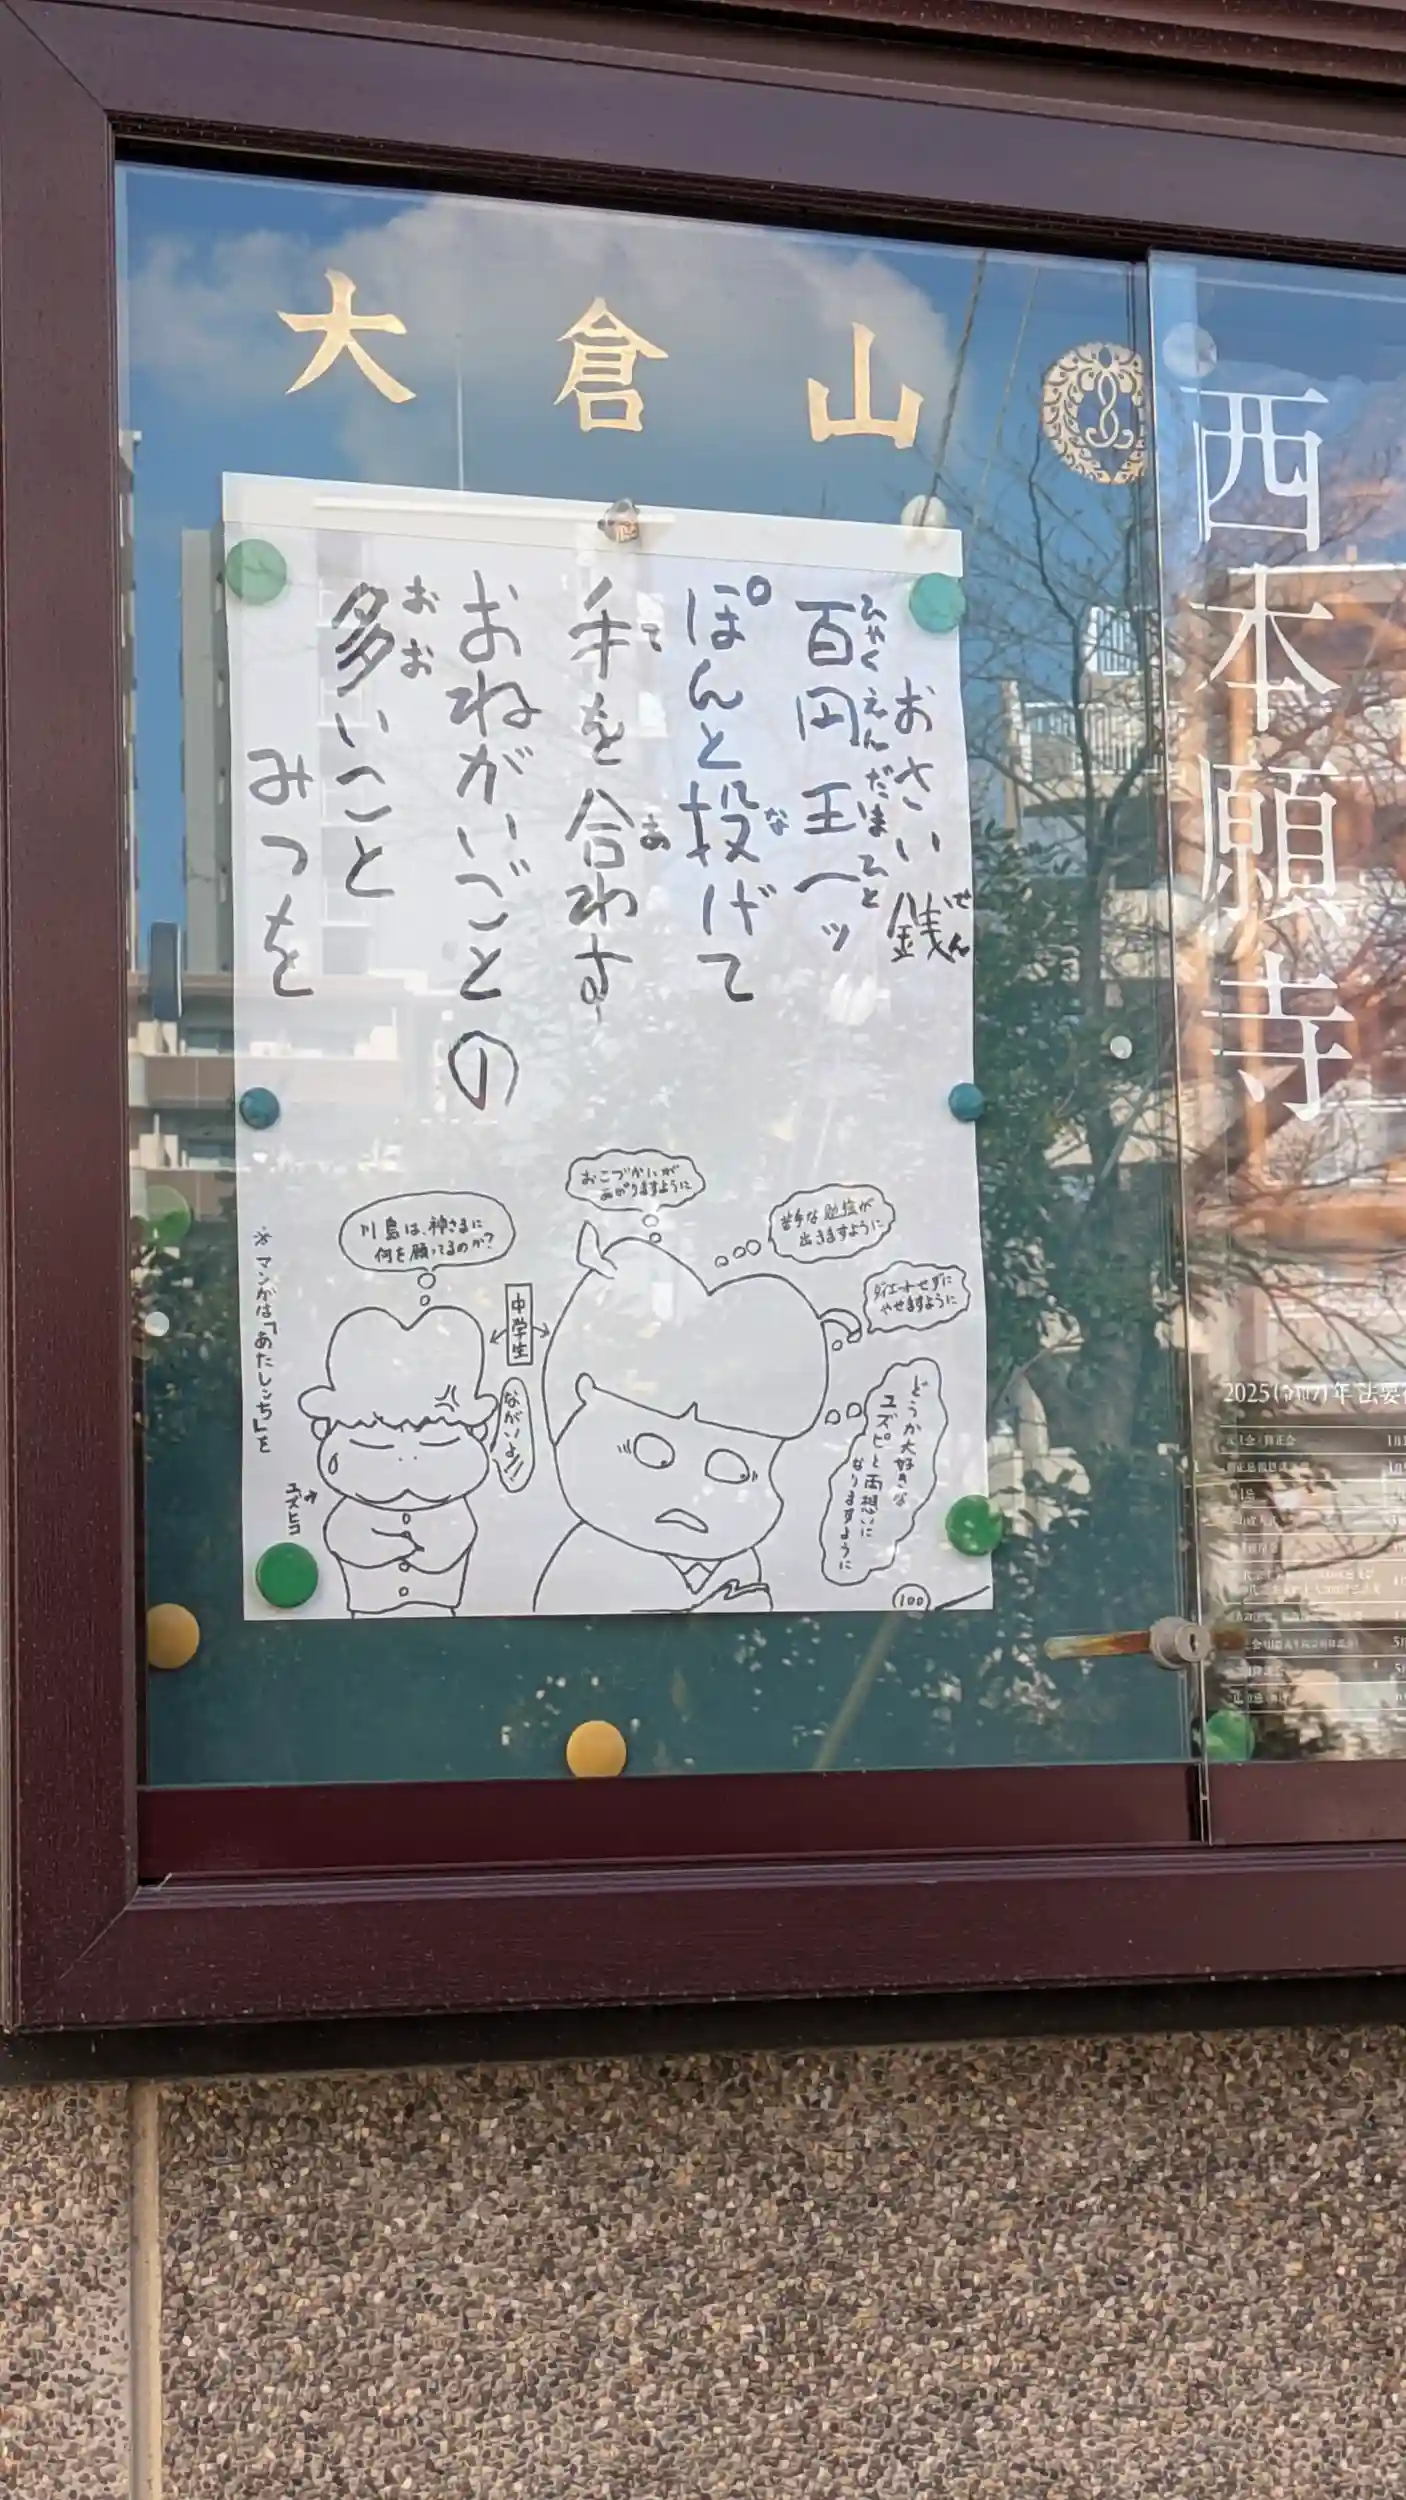 大倉山
西本願寺
おさい銭
せん
百円玉一ッ
ひゃくえんだまひと
ぽんと投げて
な
手を合わす
て
あ
おねがいごとの
多いこと
おお
みつを
おこづかいが
あがりますように
苦手な勉強が
出きますように
ダイエットせずに
やせますように
どうか大好きな
ユズピと両想いに
なりますように
川島は、神さまに
何を願ってるのか?
中学生
ながいよ!!
ユズヒコ
※マンガは「あたしンち」を
100
2025(令和7)年 法要